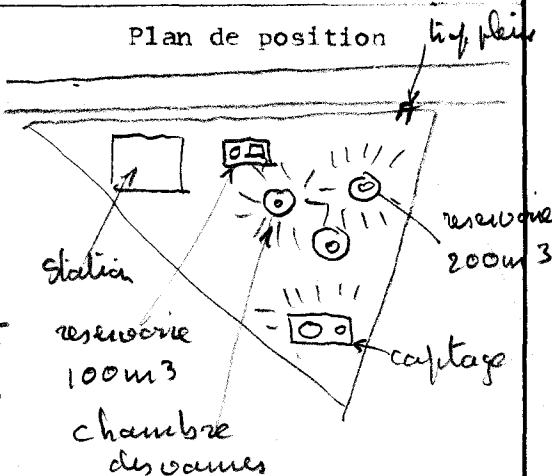 Plan de position
trop plein
reservoire
200m3
Station
reservoire
100m3
captage
chambre
des vannes